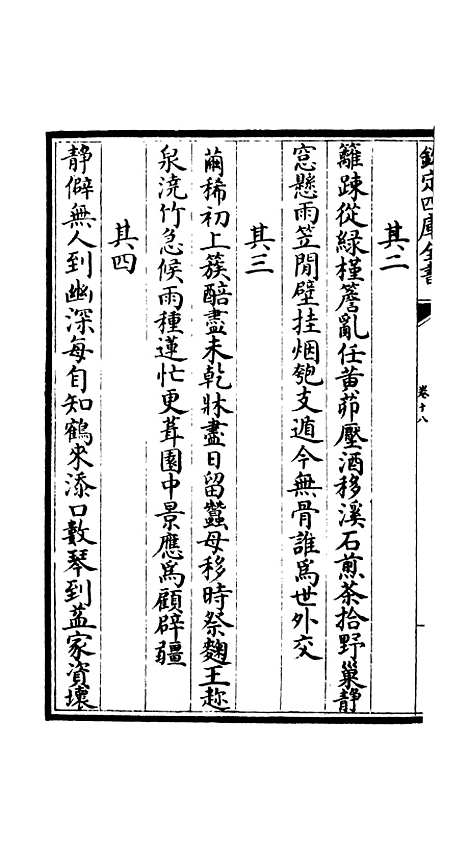 欽定四庫全書
卷十八
其二
籬踈從緑槿簷亂任黃茆壓酒移溪石煎茶拾野巢靜
窓懸雨笠閒壁挂烟匏支遁今無骨誰爲世外交
其三
繭稀初上簇醅盡未乾牀盡日留蠶母移時祭麴王趂
泉澆竹急候雨種蓮忙更葺園中景應爲顧辟疆
其四
靜僻無人到幽深每自知鶴來添口數琴到益家資壞